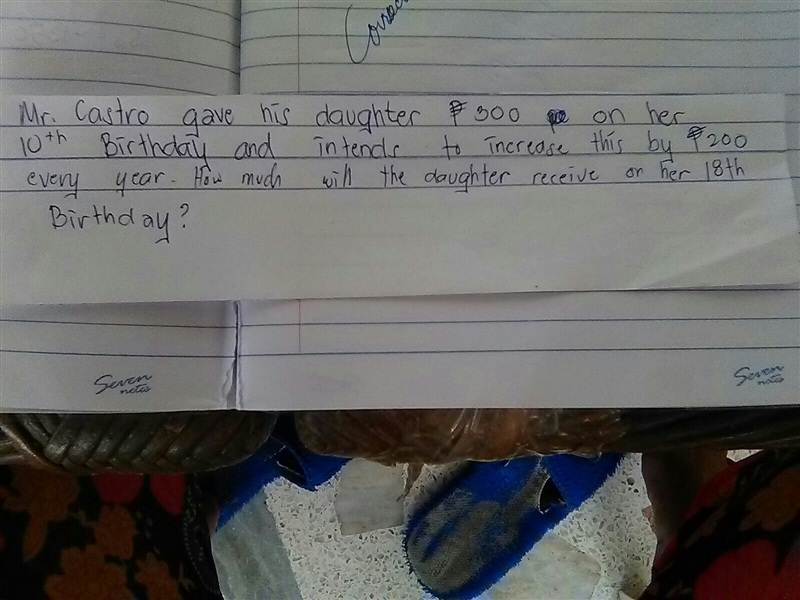 Mr. Castro gave his daughter ₱300 on her
10th Birthday and intends to increase this by ₱200
every year. How much will the daughter receive on her 18th
Birthday?
Seven
notes
Seven
notes